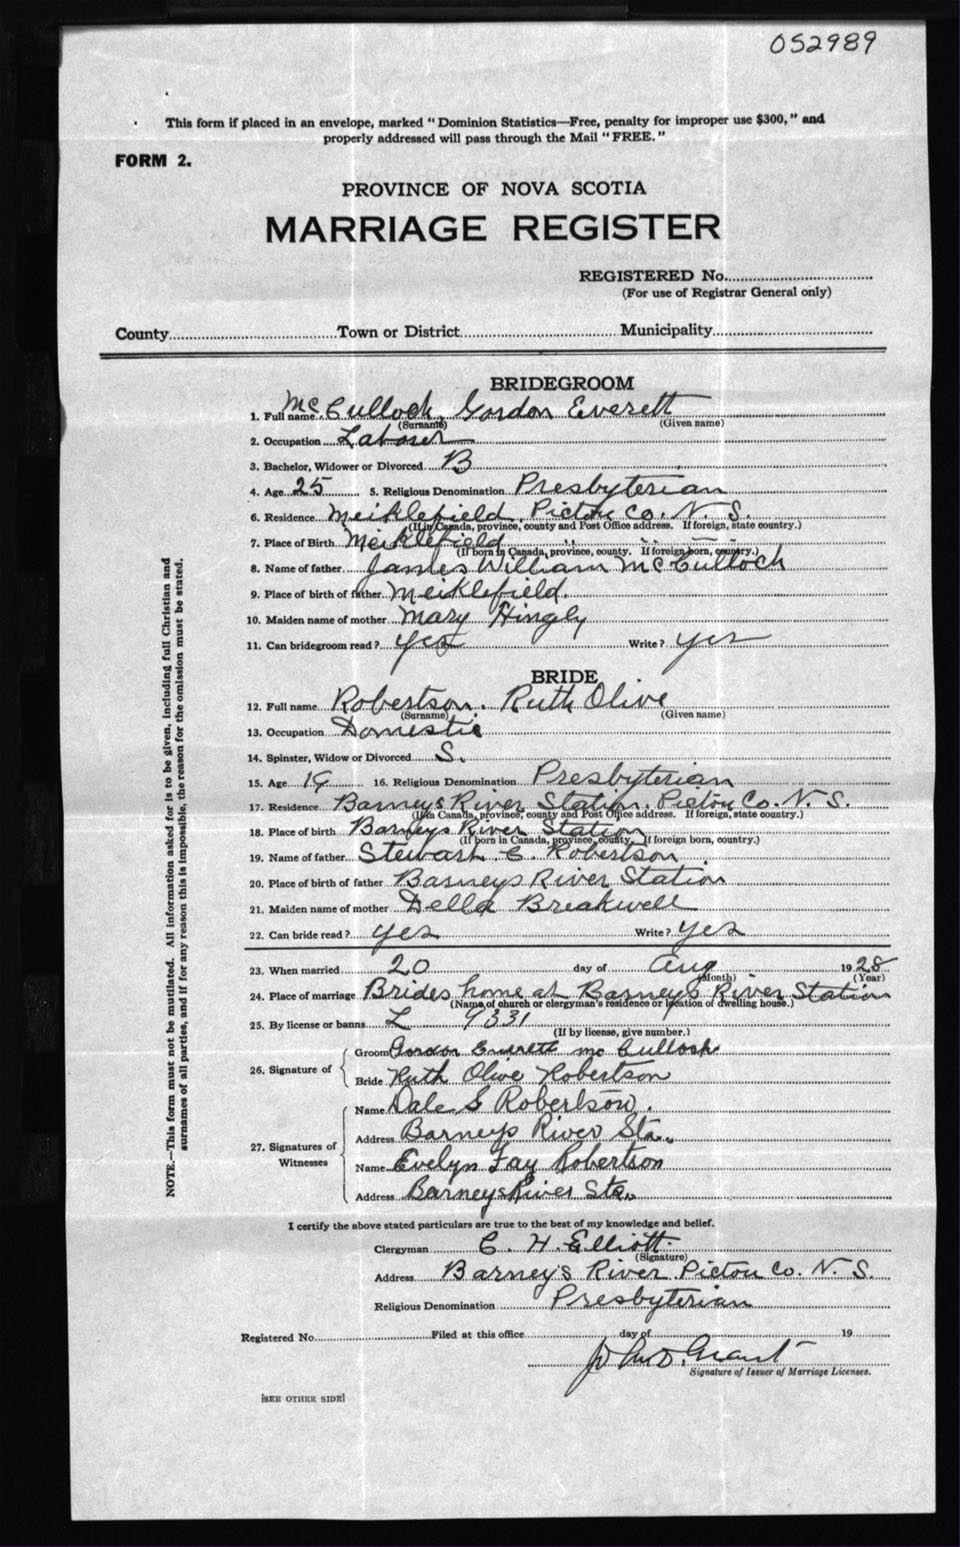 052989
This form if placed in an envelope, marked "Dominion Statistics—Free, penalty for improper use $300," and
properly addressed will pass through the Mail "FREE."
FORM 2.
PROVINCE OF NOVA SCOTIA
MARRIAGE REGISTER
REGISTERED No.
(For use of Registrar General only)
County Town or District Municipality
BRIDEGROOM
1. Full name McCulloch, Gordon Everett
(Surname) (Given name)
2. Occupation Laborer
3. Bachelor, Widower or Divorced B
4. Age 25 5. Religious Denomination Presbyterian
6. Residence Meiklefield, Pictou Co. N. S.
(If in Canada, province, county and Post Office address. If foreign, state country.)
7. Place of Birth Meiklefield " " "
(If born in Canada, province, county. If foreign born, country.)
8. Name of father James William McCulloch
9. Place of birth of father Meiklefield.
10. Maiden name of mother Mary Hingly
11. Can bridegroom read? yes Write? yes
BRIDE
12. Full name Robertson. Ruth Olive
(Surname) (Given name)
13. Occupation Domestic
14. Spinster, Widow or Divorced S.
15. Age 19 16. Religious Denomination Presbyterian
17. Residence Barneys River Station, Pictou Co. N. S.
(If in Canada, province, county and Post Office address. If foreign, state country.)
18. Place of birth Barneys River Station
(If born in Canada, province, county. If foreign born, country.)
19. Name of father Stewart C. Robertson
20. Place of birth of father Barneys River Station
21. Maiden name of mother Della Breakwell
22. Can bride read? yes Write? yes
23. When married 20 day of Aug 1928
(Month) (Year)
24. Place of marriage Brides home at Barneys River Station
(Name of church or clergyman's residence or location of dwelling house.)
25. By license or banns L 9331
(If by license, give number.)
26. Signature of
Groom Gordon Everett McCulloch
Bride Ruth Olive Robertson
27. Signatures of Witnesses
Name Dale S Robertson.
Address Barneys River Sta.
Name Evelyn Fay Robertson
Address Barneys River Sta.
I certify the above stated particulars are true to the best of my knowledge and belief.
Clergyman C. H. Elliott.
(Signature)
Address Barney's River Pictou Co. N. S.
Religious Denomination Presbyterian
Registered No. Filed at this office day of 19
John D. Grant
Signature of Issuer of Marriage Licenses.
[SEE OTHER SIDE]
NOTE.—This form must not be mutilated. All information asked for is to be given, including full Christian and
surnames of all parties, and if for any reason this is impossible, the reason for the omission must be stated.